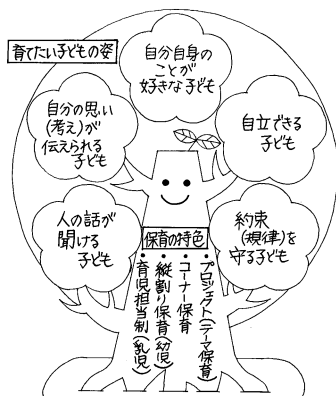 育てたい子どもの姿
自分自身の
ことが
好きな子ども
自分の思い
(考え)が
伝えられる
子ども
自立できる
子ども
人の話が
聞ける
子ども
約束
(規律)を
守る子ども
保育の特色
・プロジェクト(テーマ保育)
・コーナー保育
・縦割り保育(幼児)
・育児担当制(乳児)